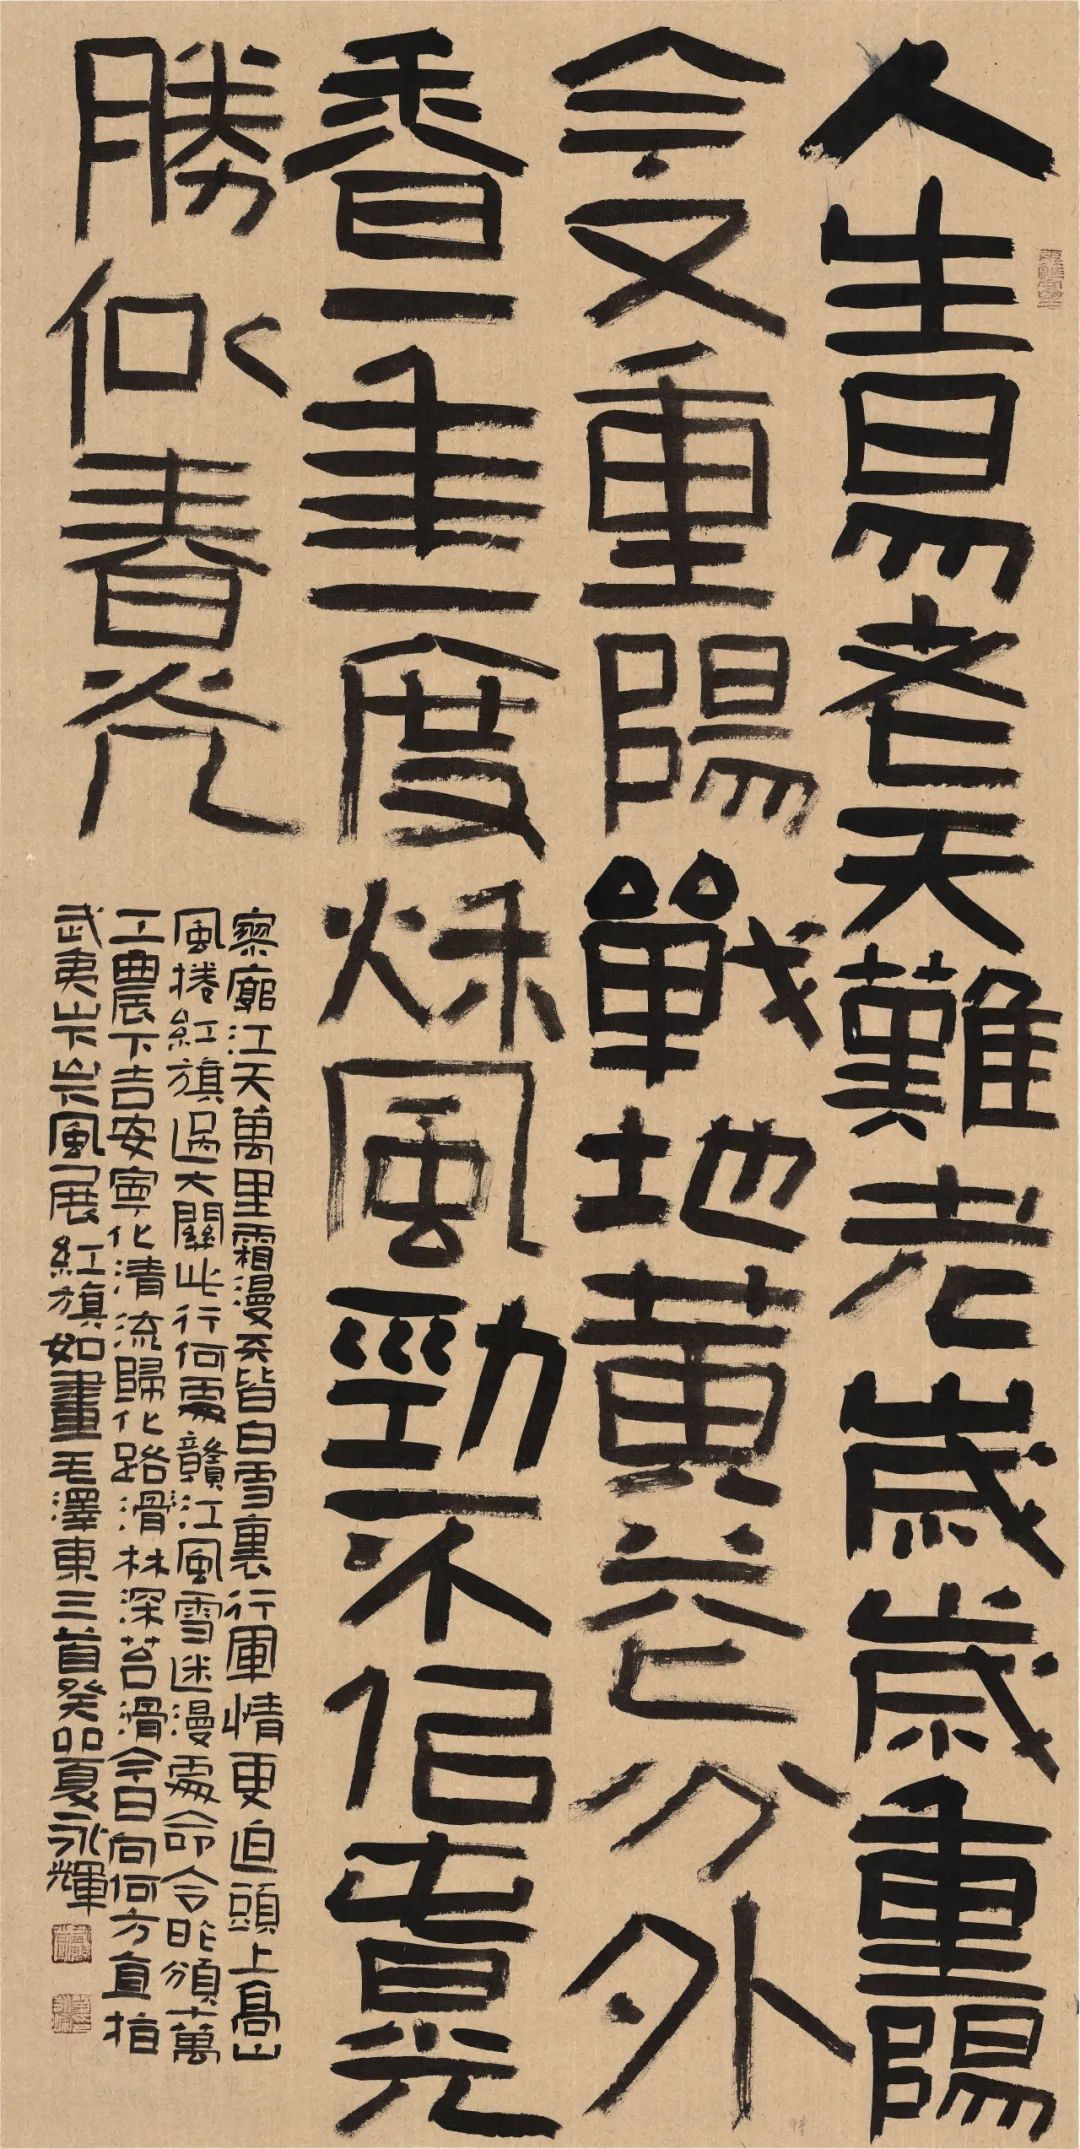 人生易老天難老歲歲重陽
今又重陽戰地黃花分外
香一年一度秋風勁不佀春光
勝似春光
寥廓江天萬里霜漫天皆白雪裏行軍情更迫頭上高山
風捲紅旗過大關此行何處贛江風雪迷漫處命令昨頒十萬
工農下吉安寧化清流歸化路滑林深苔滑今日向何方直指
武夷山下山下風展紅旗如畫毛澤東三首癸卯夏永輝